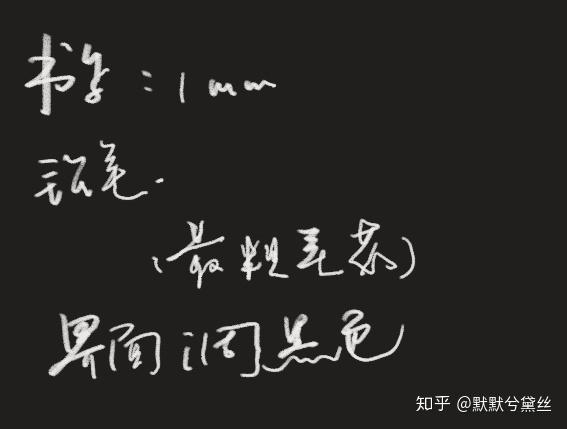 书写：1mm
铅笔.
（最粗笔芯）
界面调黑色
知乎 @默默兮黛丝